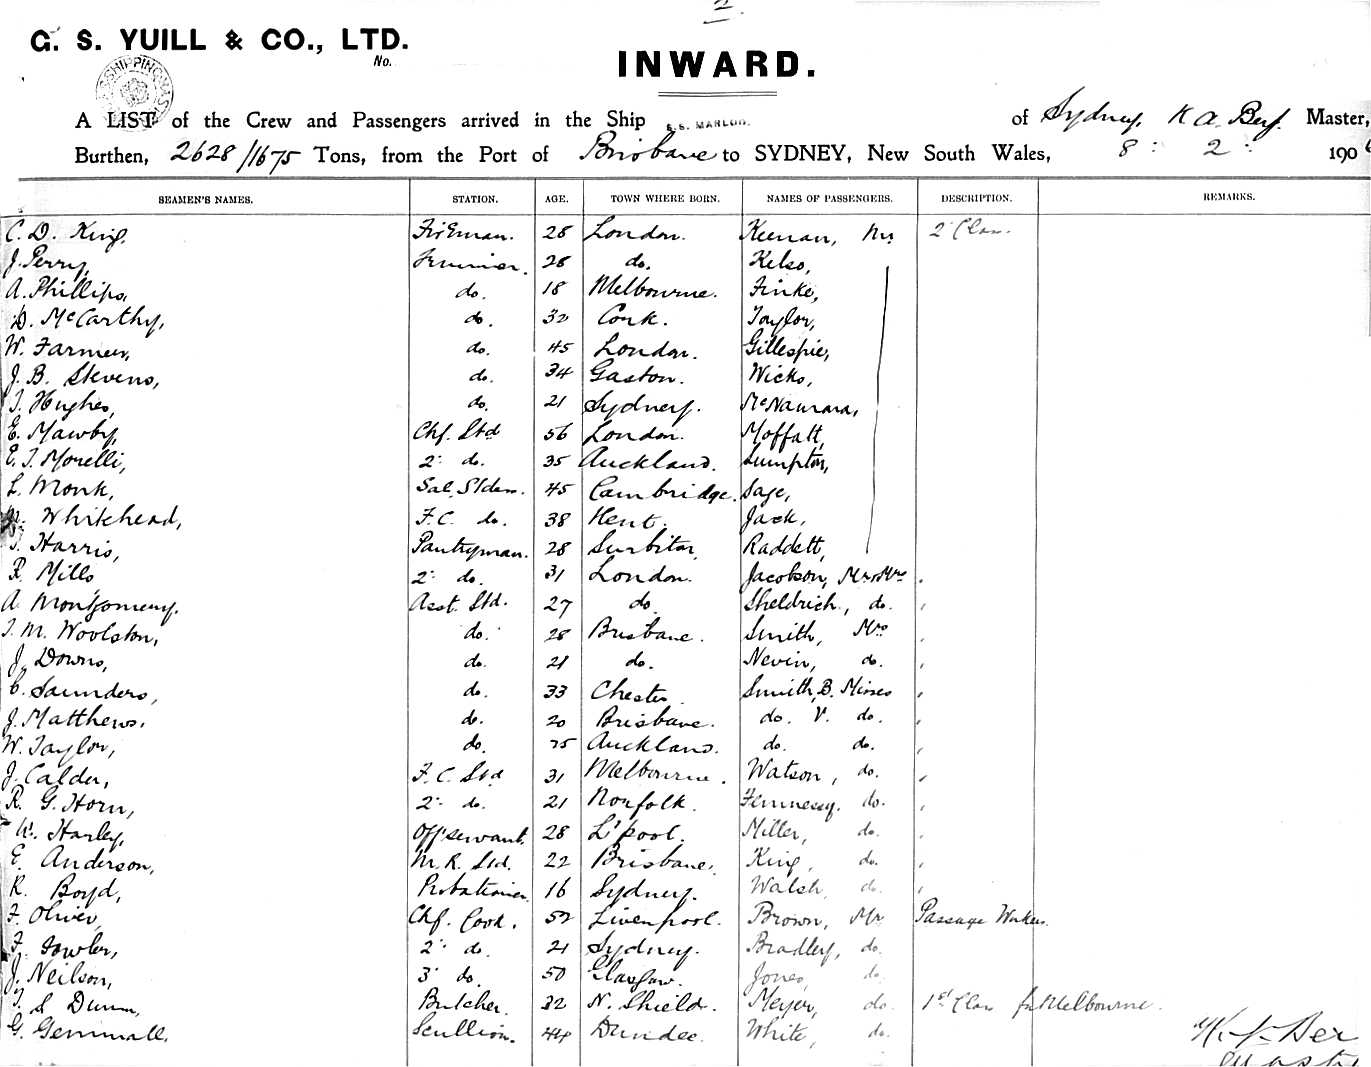 2
G. S. YUILL & CO., LTD.
No.
INWARD.
A LIST of the Crew and Passengers arrived in the Ship S.S. MARLOO. of Sydney, K A. Master,
Burthen, 2628/1675 Tons, from the Port of Brisbane to SYDNEY, New South Wales, 8: 2: 190
SEAMEN'S NAMES. STATION. AGE. TOWN WHERE BORN. NAMES OF PASSENGERS. DESCRIPTION. REMARKS.
C. D. King, Fireman. 28 London. Keenan, Mr 2 Class.
J. Perry, Trimmer. 28 do. Kelso,
A. Phillips, do. 18 Melbourne. Finke,
D. McCarthy, do. 32 Cork. Taylor,
W. Farmer, do. 45 London. Gillespie,
J. B. Stevens, do. 34 Gaston. Wicks,
T. Hughes, do. 21 Sydney. McNamara,
E. Mawby, Chf. Std 56 London. Moffatt,
E. T. Morelli, 2: do. 35 Auckland. Sumpton,
L. Monk, Sal. 45 Cambridge. Sage,
Whitehead, F.C. do. 38 Kent. Jack,
T. Harris, Pantryman. 28 Surbiton, Raddett,
R. Mills 2: do. 31 London. Jacobson, Mr & Mrs
A. Montgomery. Asst. Std. 27 do Sheldrich, do.
T. M. Woolston, do. 28 Brisbane. Smith, Mrs
J. Downs, do. 21 do. Nevin, do.
C. Saunders, do. 33 Chester. Smith, B. Misses
J. Matthews. do. 20 Brisbane. do. V. do.
W. Taylor, do. 25 Auckland. do. do.
J. Calder, F. C. Std 31 Melbourne. Watson, do.
R. G. Horn, 2: do. 21 Norfolk. Fennessy. do.
W. Harley, Off's servant. 28 L'pool. Miller, do.
E. Anderson, M. R. Std. 22 Brisbane. King, do.
R. Boyd, Probationer. 16 Sydney. Walsh do.
F. Oliver, Chf. Cook. 52 Liverpool. Brown, Mr Passage Workers.
F. Fowler, 2: do. 21 Sydney. Bradley, do.
J. Neilson, 3 do. 50 Glasgow. Jones, do.
T. S Dunn, Butcher. 32 N. Shield. Meyer, do. 1st Class for Melbourne.
G. Gemmall, Scullion. 44 Dundee. White, do.